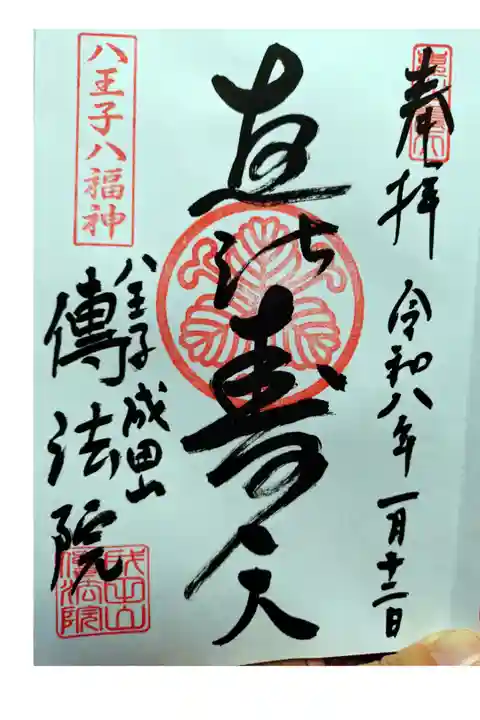 奉拝 令和八年一月十二日
恵比寿天
八王子八福神
八王子成田山
傳法院
成田山
傳法院